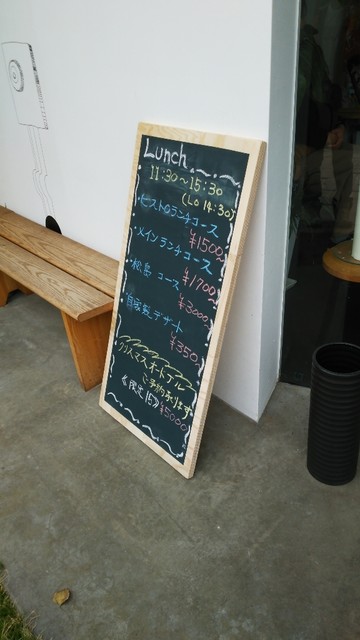 Lunch
11:30〜15:30
(LO 14:30)
・ビストロランチコース
¥1500
・メインランチコース
¥1700
・松島 コース
¥3000
・自家製デザート
¥350
クリスマスオードブル
ご予約承ります
《限定15》¥5000